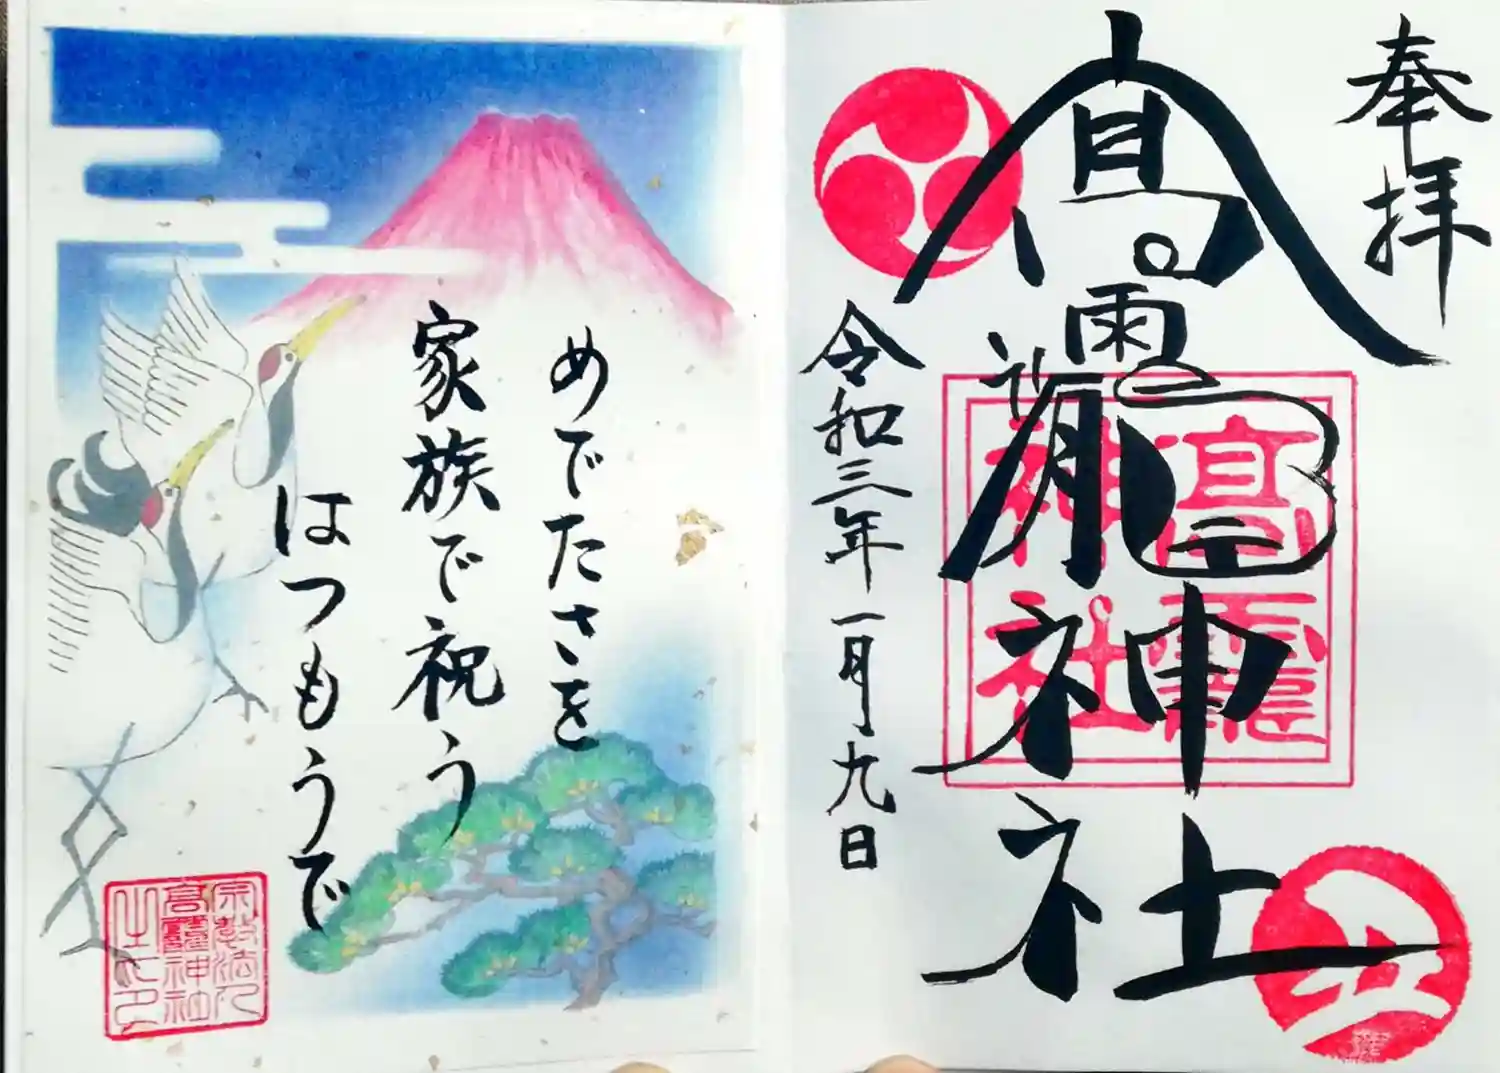 奉拝
髙龗神社
令和三年一月九日
髙龗
神社
めでたさを
家族で祝う
はつもうで
宗教法人
髙龗神社
之印